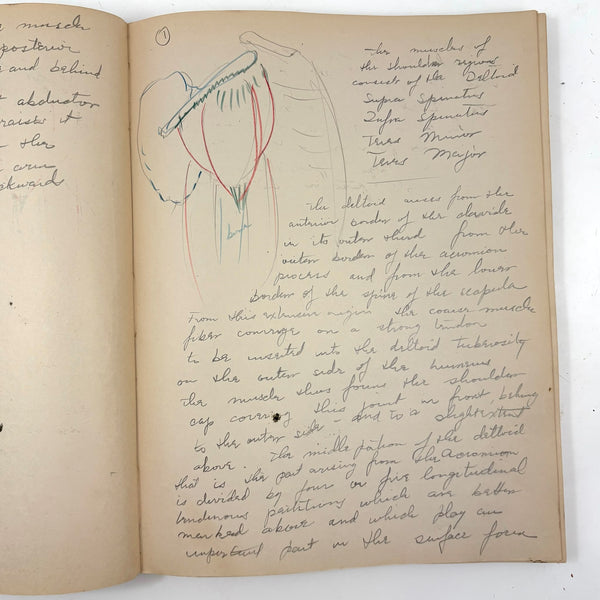 muscle
posterior
and behind
abductor
raises it
the
arm
ckwards
1
The muscles of
the shoulder regions
consist of the Deltoid
Supra Spinatus
Infra Spinatus
Teres Minor
Teres Major
bone
The deltoid arises from the
anterior border of the clavicle
in its outer third from the
outer border of the acromion
process and from the lower
border of the spine of the scapula
From this extensive origin the coarse muscle
fiber converge on a strong tendon
to be inserted into the deltoid tuberosity
on the outer side of the humerus
The muscle thus forms the shoulder
cap covering this joint in front, behing
to the outer side - and to a slight extent
above. The middle potion of the deltoid
that is the part arising from the acromion
is divided by four or five longitudinal
tendinous partitions which are better
marked above and which play an
important part in the surface form